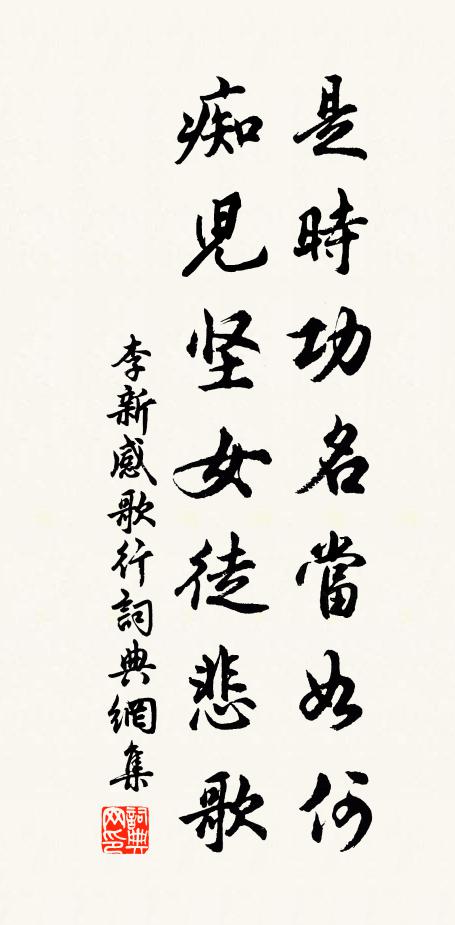 是時功名當如何
痴児坚女徒悲歌
李新感歌行詞典網集
詞典网印